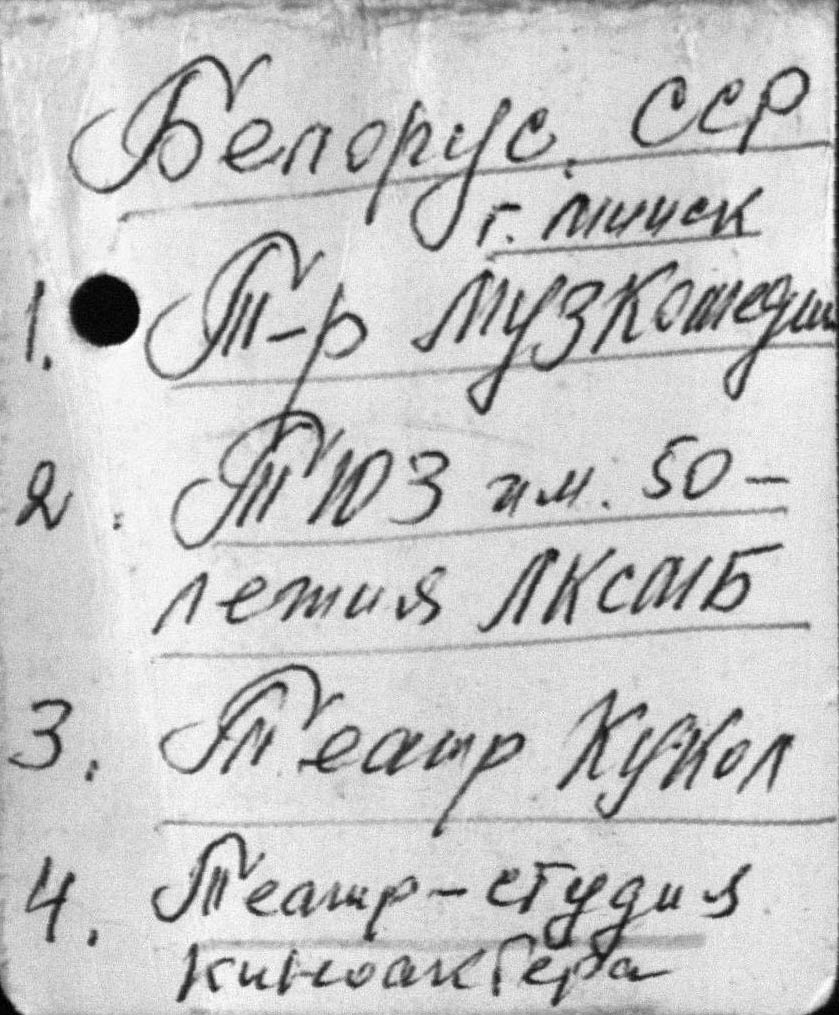 Белорус. ССР
г. Минск
1. Т-р Музкомедии
2. ТЮЗ им. 50-
летия ЛКСМБ
3. Театр Кукол
4. Театр-студия
киноактера